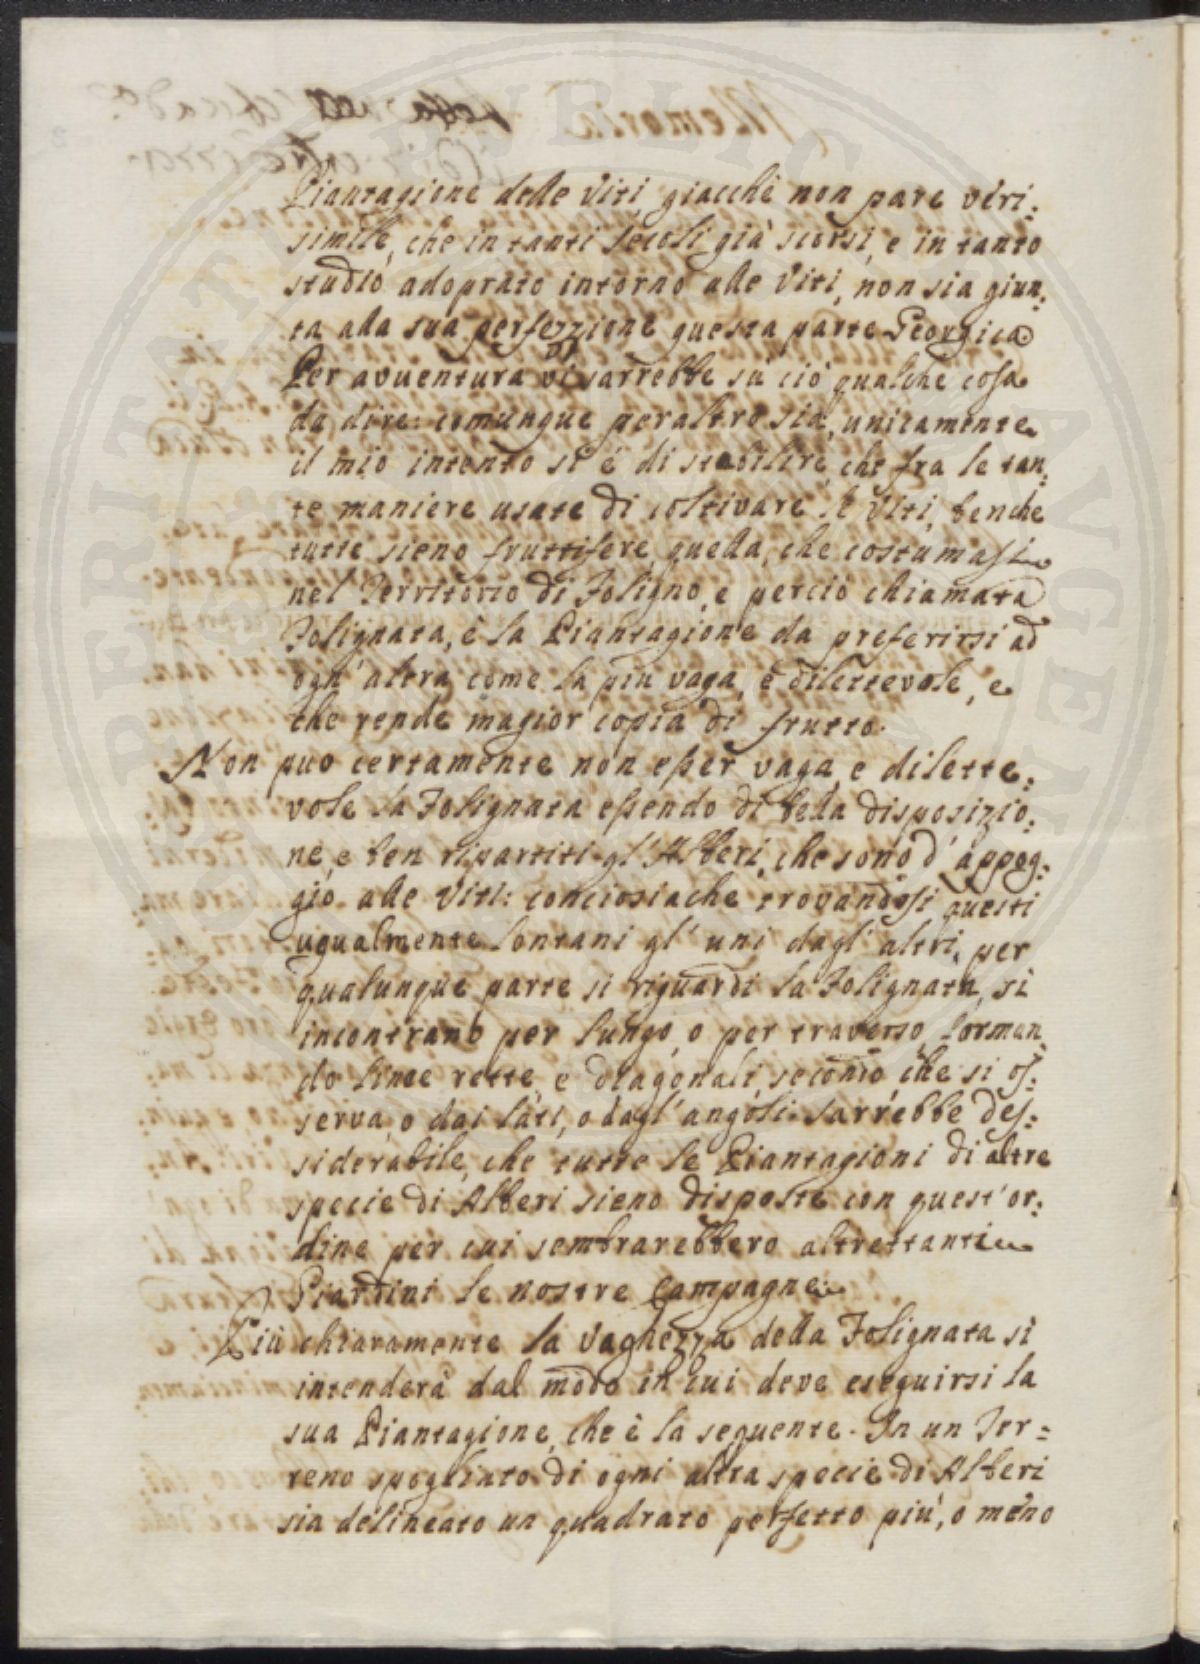 Piantagione delle Viti, giacchè non pare veri:
simile, che in tanti secoli già scorsi, e in tanto
studio adoprato intorno alle Viti, non sia giun:
ta alla sua perfezzione questa parte Georgica
Per avventura vi sarrebbe su ciò qualche cosa
da dire: comunque peraltro sia, unicamente
il mio intento si è di stabilire, che fra le tan:
te maniere usate di coltivare le Viti, benche
tutte sieno fruttifere, quella, che costumasi
nel Territorio di Foligno, e perciò chiamata
Folignata, è la Piantagione da preferirsi ad
ogn' altra come la più vaga, e dilettevole, e
che rende magior copia di frutto.
Non può certamente non esser vaga, e dilette:
vole la Folignata essendo di bella disposizio:
ne, e ben ripartiti gl' Alberi, che sono d' appog:
gio alle Viti: conciosiache trovandosi questi
ugualmente lontani gl' uni dagl' altri, per
qualunque parte si riguardi la Folignata, si
incontrano per lungo, o per traverso, forman
do linee rette, e diagonali, secondo che si os:
serva, o dai lati, o dagl' angoli. Sarrebbe des:
siderabile, che tutte le Piantagioni di altre
specie di Alberi sieno disposte con quest' or:
dine per cui sembrarebbero altrettanti
Giardini le nostre Campagne
Più chiaramente la vaghezza della Folignata si
intenderà dal modo in cui deve eseguirsi la
sua Piantagione, che è la seguente. In un Ter=
reno spogliato di ogni altra specie di Alberi
sia delineato un quadrato perfetto più, o meno